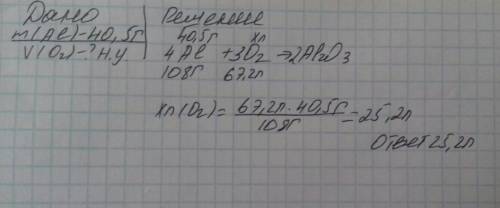 Дано
m(Al)-40,5г
V(O2)-? Н.У.
Решение
40,5г хл
4Al +3O2 →2Al2O3
108г 67,2л
Xл(O2)= 67,2л·40,5г / 108г =25,2л
Ответ 25,2л